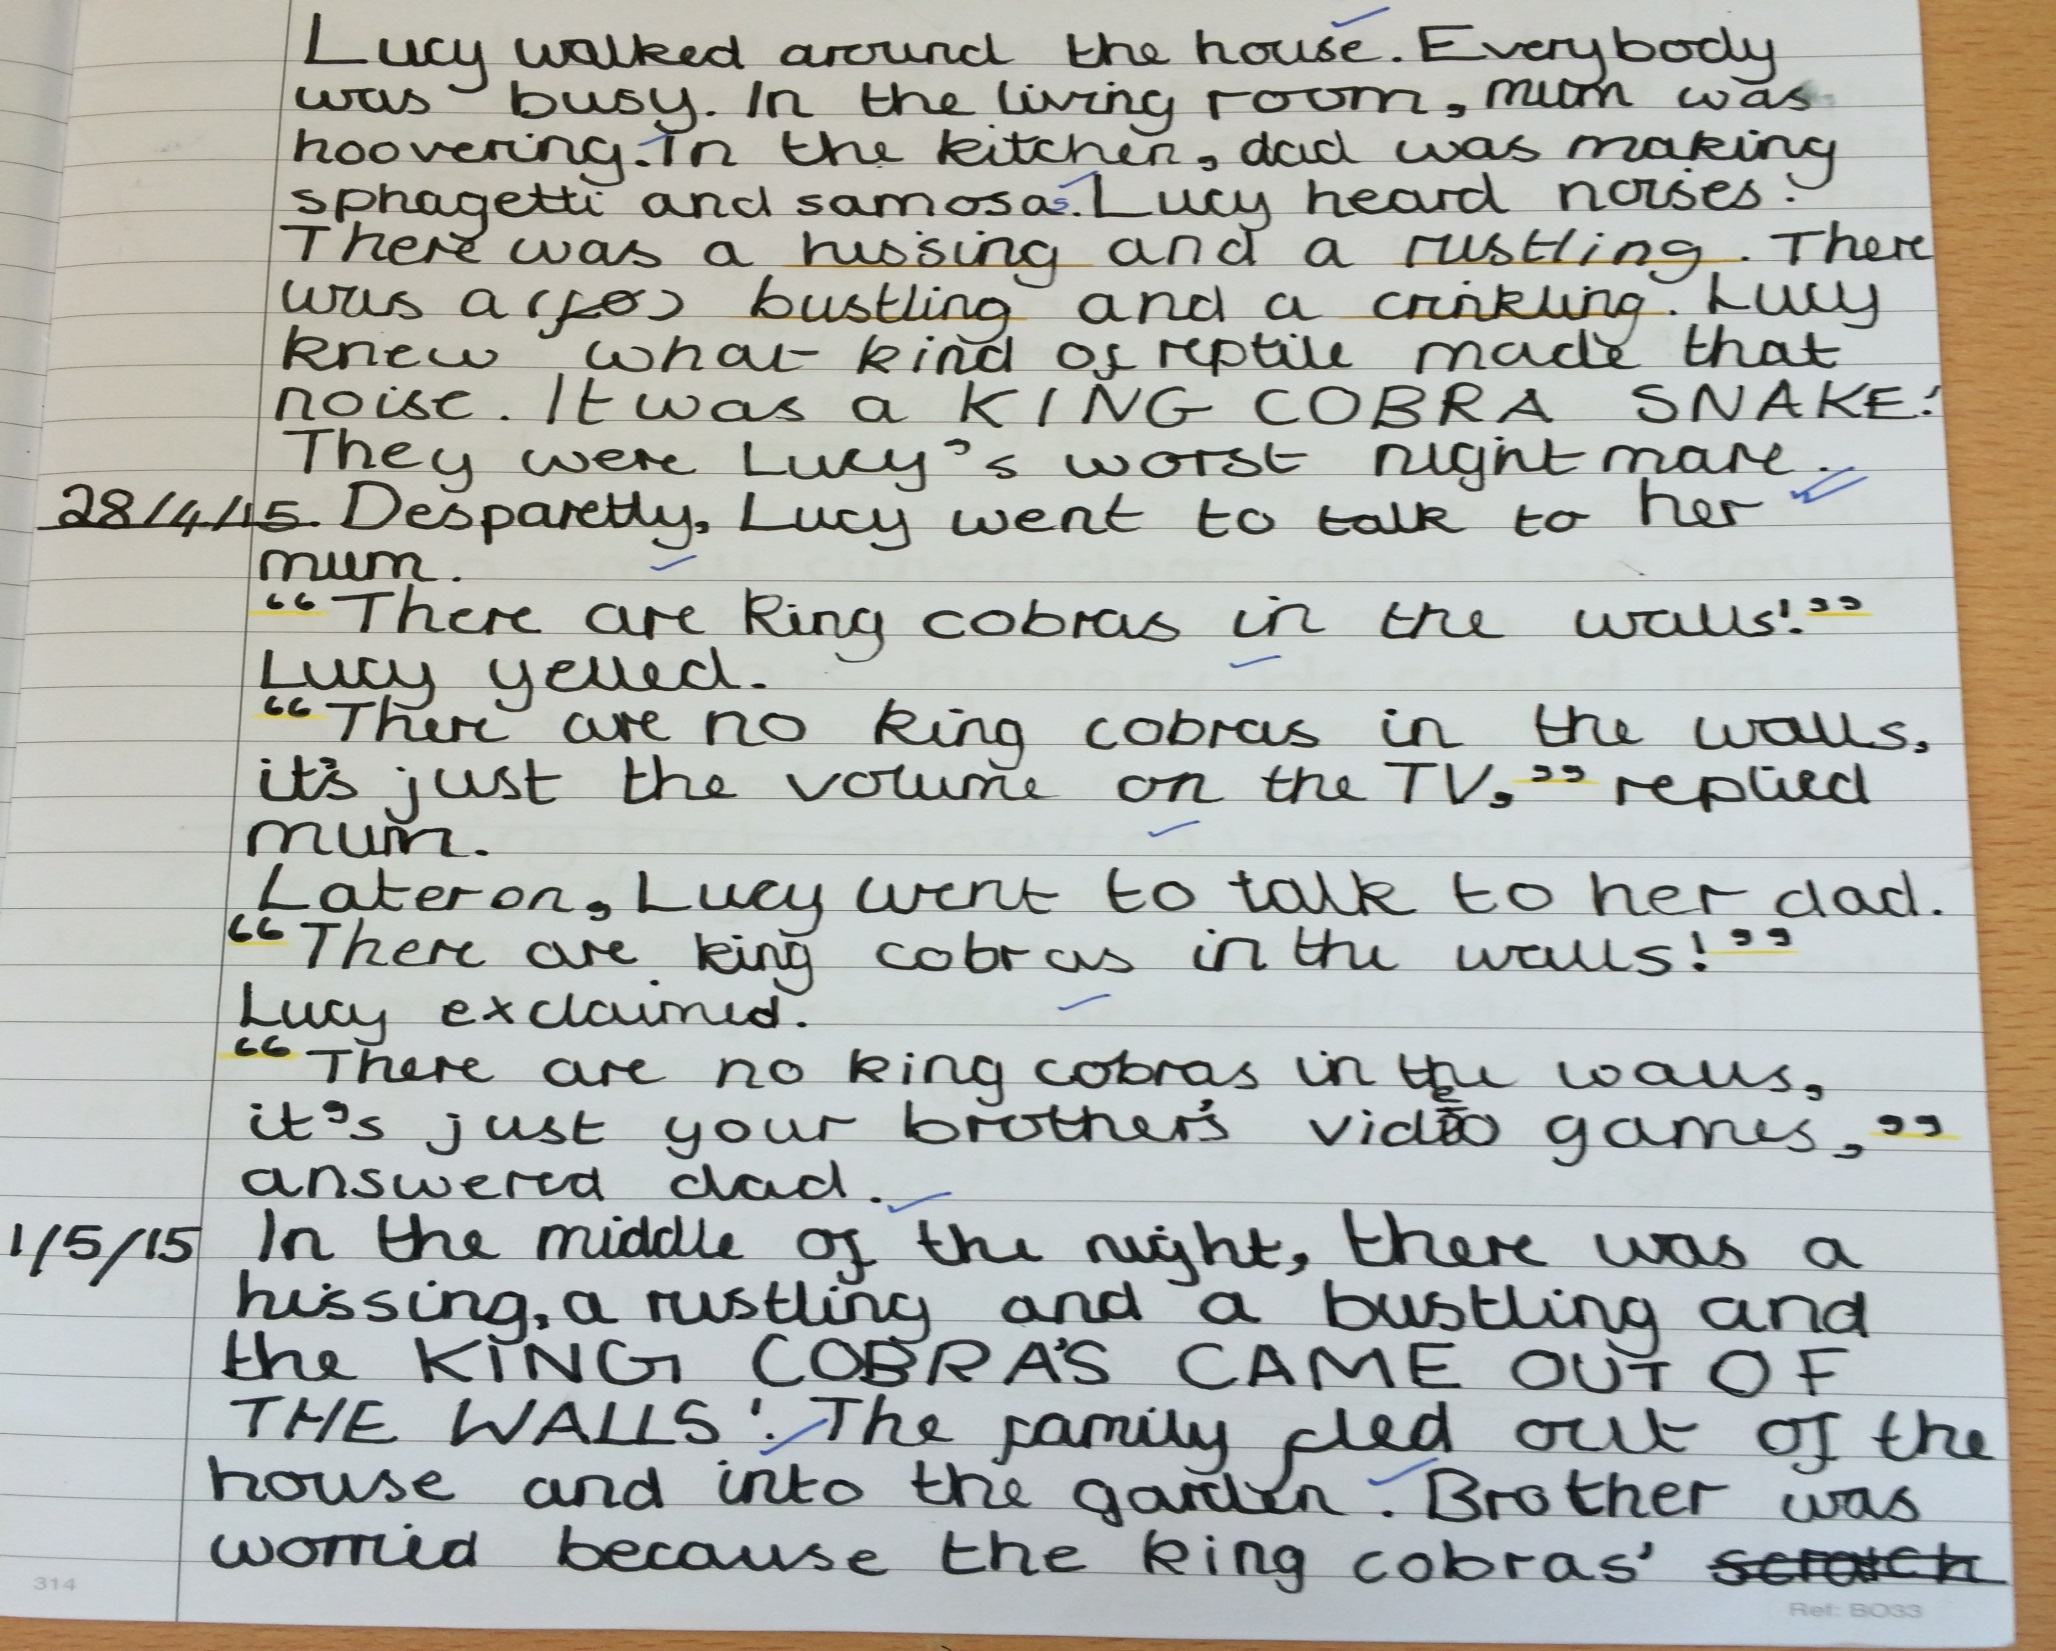 Lucy walked around the house. Everybody
was busy. In the living room, mum was
hoovering. In the kitchen, dad was making
sphagetti and samosas. Lucy heard noises.
There was a hissing and a rustling. There
was a bustling and a crinkling. Lucy
knew what kind of reptile made that
noise. It was a KING COBRA SNAKE!
They were Lucy's worst nightmare.
28/4/15. Desparetly, Lucy went to talk to her
mum.
“There are king cobras in the walls!”
Lucy yelled.
“There are no king cobras in the walls,
it's just the volume on the TV,” replied
mum.
Later on, Lucy went to talk to her dad.
“There are king cobras in the walls!”
Lucy exclaimed.
“There are no king cobras in the walls,
it's just your brother's video games,”
answered dad.
1/5/15 In the middle of the night, there was a
hissing, a rustling and a bustling and
the KING COBRA'S CAME OUT OF
THE WALLS! The family fled out of the
house and into the garden. Brother was
worried because the king cobras' scratch
314
Ref: BO33